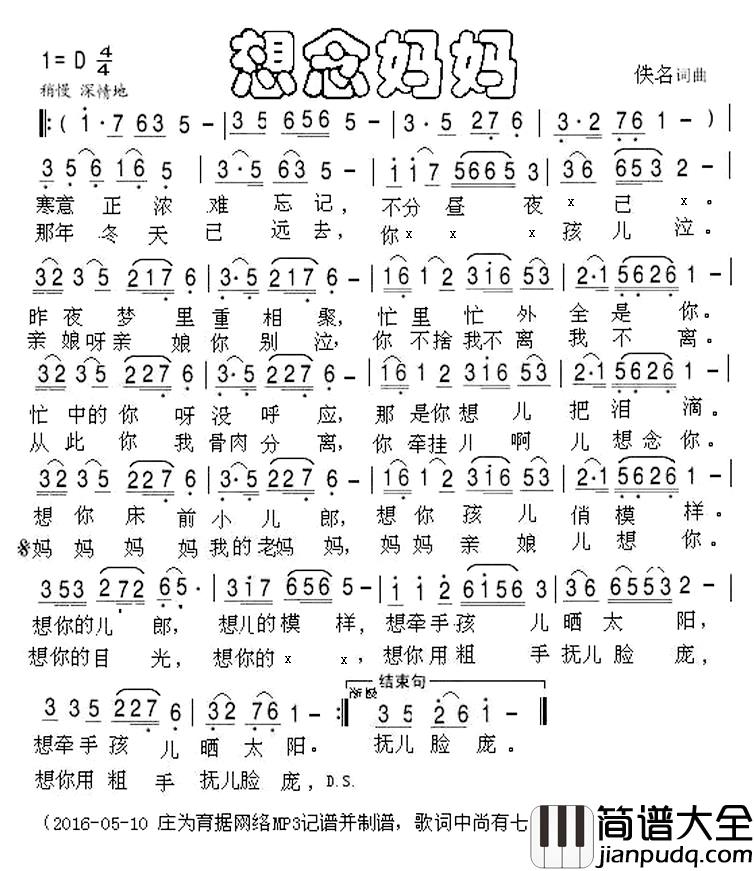 想念妈妈
1=D 4/4
稍慢 深情地
佚名词曲
‖:( i·7 63 5 - | 35 656 5 - | 3·5 27 6 | 3·2 76 1 - ) |
3 5 6 1 6 5 | 3·5 63 5 - | i i 7 5665 3 | 36 653 2 - |
寒意正浓难忘记，不分昼夜x已x。
那年冬天已远去，你xxx孩儿泣。
32 35 217 6 | 3·5 217 6 - | 16 12 3i6 53 | 2·1 5626 1 - |
昨夜梦里重相聚，忙里忙外全是你。
亲娘呀亲娘你别泣，你不捨我不离我不离。
32 35 227 6 | 3·5 227 6 - | 16 12 3i6 53 | 2·1 5626 1 - |
忙中的你呀没呼应，那是你想儿把泪滴。
从此你我骨肉分离，你牵挂儿啊儿想念你。
32 35 227 6 | 3·5 227 6 - | 16 12 3i6 53 | 2·1 5626 1 - |
想你床前小儿郎，想你孩儿俏模样。
妈妈妈妈我的老妈妈，妈妈亲娘儿想你。
353 272 65· | 3i7 656 5 - | i i 2 6156 3 | 36 6553 2 - |
想你的儿郎，想儿的模样，想牵手孩儿晒太阳，
想你的目光，想你的xx，想你用粗手抚儿脸庞，
3 35 227 6 | 32 76 1 - :‖ 结束句 35 26 i - ‖
想牵手孩儿晒太阳。抚儿脸庞。
想你用粗手抚儿脸庞，D.S.
（2016-05-10 庄为育据网络MP3记谱并制谱，歌词中尚有七
简谱大全
jianpudq.com